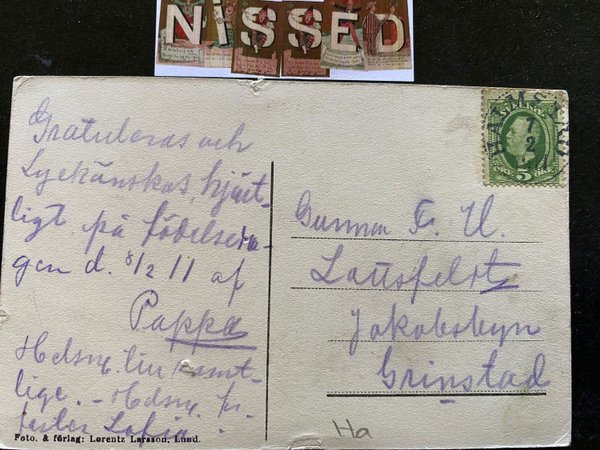 NISSED
Gratuleras och
Lyckönskas hjärt-
ligt på födelseda-
gen d. 8/2 11 af
Pappa
Helsn. till samt-
lige. - Helsn. fr.
faster Sofia.
Foto. & förlag: Lorentz Larsson, Lund.
HALMSTAD
7
2
5 ÖRE
Gunnar F. U.
Jakobsbyn
Grinstad
Ha